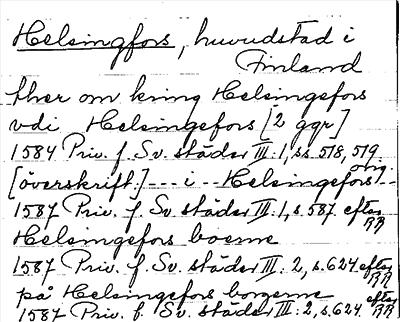 Helsingfors, huvudstad i
Finland
ther om kring Helsingefors
vdi Helsingefors [2 ggr]
1584 Priv. f. Sv. städer III: 1, ss. 518, 519.
[överskrift:] --- i -- Helsingefors --
1587 Priv. f. Sv. städer III: 1, s. 587 efter RR
Helsingefors boerne
1587 Priv. f. Sv. städer III: 2, s. 624 efter RR
på Helsingefors borgerne
1587 Priv. f. Sv. städer III: 2, s. 624. efter RR